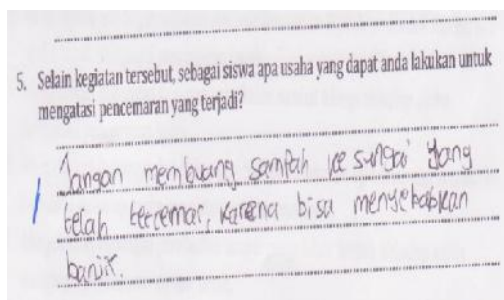 5. Selain kegiatan tersebut, sebagai siswa apa usaha yang dapat anda lakukan untuk
mengatasi pencemaran yang terjadi?
Jangan membuang sampah ke sungai yang
telah tercemar, karena bisa menyebabkan
banjir.